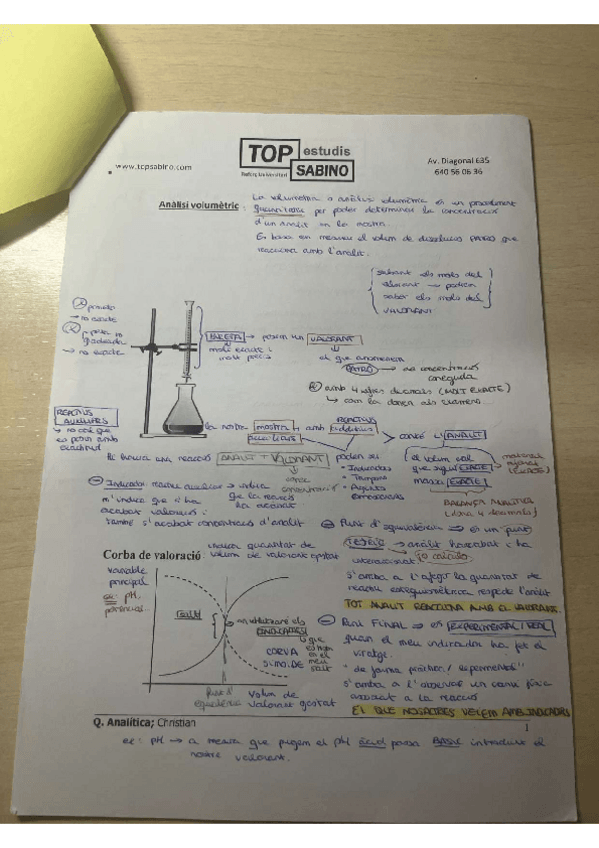 www.topsabino.com
TOP estudis
SABINO
Av. Diagonal 635
640 56 06 36
Anàlisi volumètric: La volumetria o anàlisi volumètric és un procediment
quantitatiu per poder determinar la concentració
d'un anàlit en la mostra.
Es basa en mesurar el volum de dissolució PATRÓ que
reacciona amb l'anàlit.
sabent els mols del
podem
saber els mols del
VALORANT
BURETA → posem un VALORANT
molt exacte i
molt precís
el que anomenem
PATRÓ → concentració
coneguda
amb 4 xifres decimals (MOLT EXACTE)
com la donen als exàmens...
REACTIUS
AUXILIARS
→ no cal que
es posin amb
exactitud
la nostra mostra + amb REACTIUS
additius
auxiliars
→ conté l'ANALIT
Hi haurà una reacció ANALIT + VALORANT
poden ser
• Indicadors
• Tampons
• Agents
el volum cal
que sigui EXACTE
massa EXACTE
material
BALANÇA ANALÍTICA
(dona 4 decimals)
Indicador: reactiu auxiliar → indica
que la reacció
ha acabat.
m'indica que s'ha
acabat valoració i
també s'ha acabat concentració d'anàlit
Punt d'equivalència ⇒ és un punt
TEÒRIC → anàlit
jo calculo
Corba de valoració: indica quantitat de
volum de valorant gastat
variable
principal
ex: pH,
potencial
s'arriba a l'afegir la quantitat de
reactiu estequiomètrica respecte l'anàlit
TOT ANALIT REACCIONA AMB EL VALORANT.
Salt
on utilitzaré els
INDICADORS
CORVA
SIGMOIDE
Punt FINAL → és EXPERIMENTAL / REAL
quan el meu indicador ha fet el
viratge.
"de forma pràctica / experimental"
s'arriba a l'observar un canvi físic
associat a la reacció
EL QUE NOSALTRES VEIEM AMB INDICADORS
Punt d'
equivalència
Volum de
valorant gastat
1
Q. Analítica; Christian
ex: pH → a mesura que pugem el pH àcid passa BÀSIC introduint el
nostre valorant.